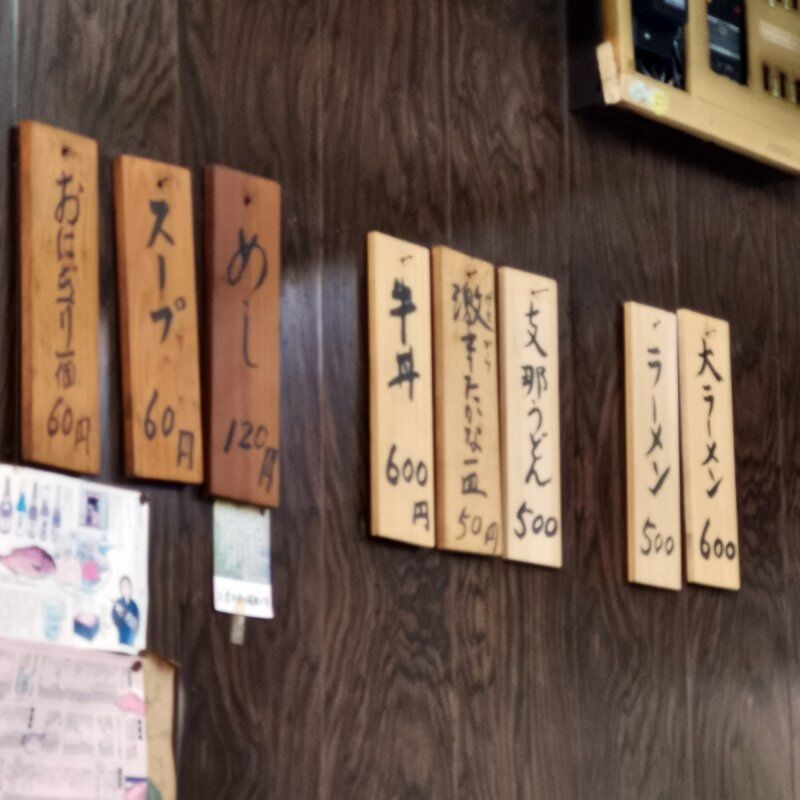 おにぎり一個
60円
スープ
60円
めし
120円
牛丼
600円
激辛たかな一皿
げきから
50円
支那うどん
500
ラーメン
500
大ラーメン
600